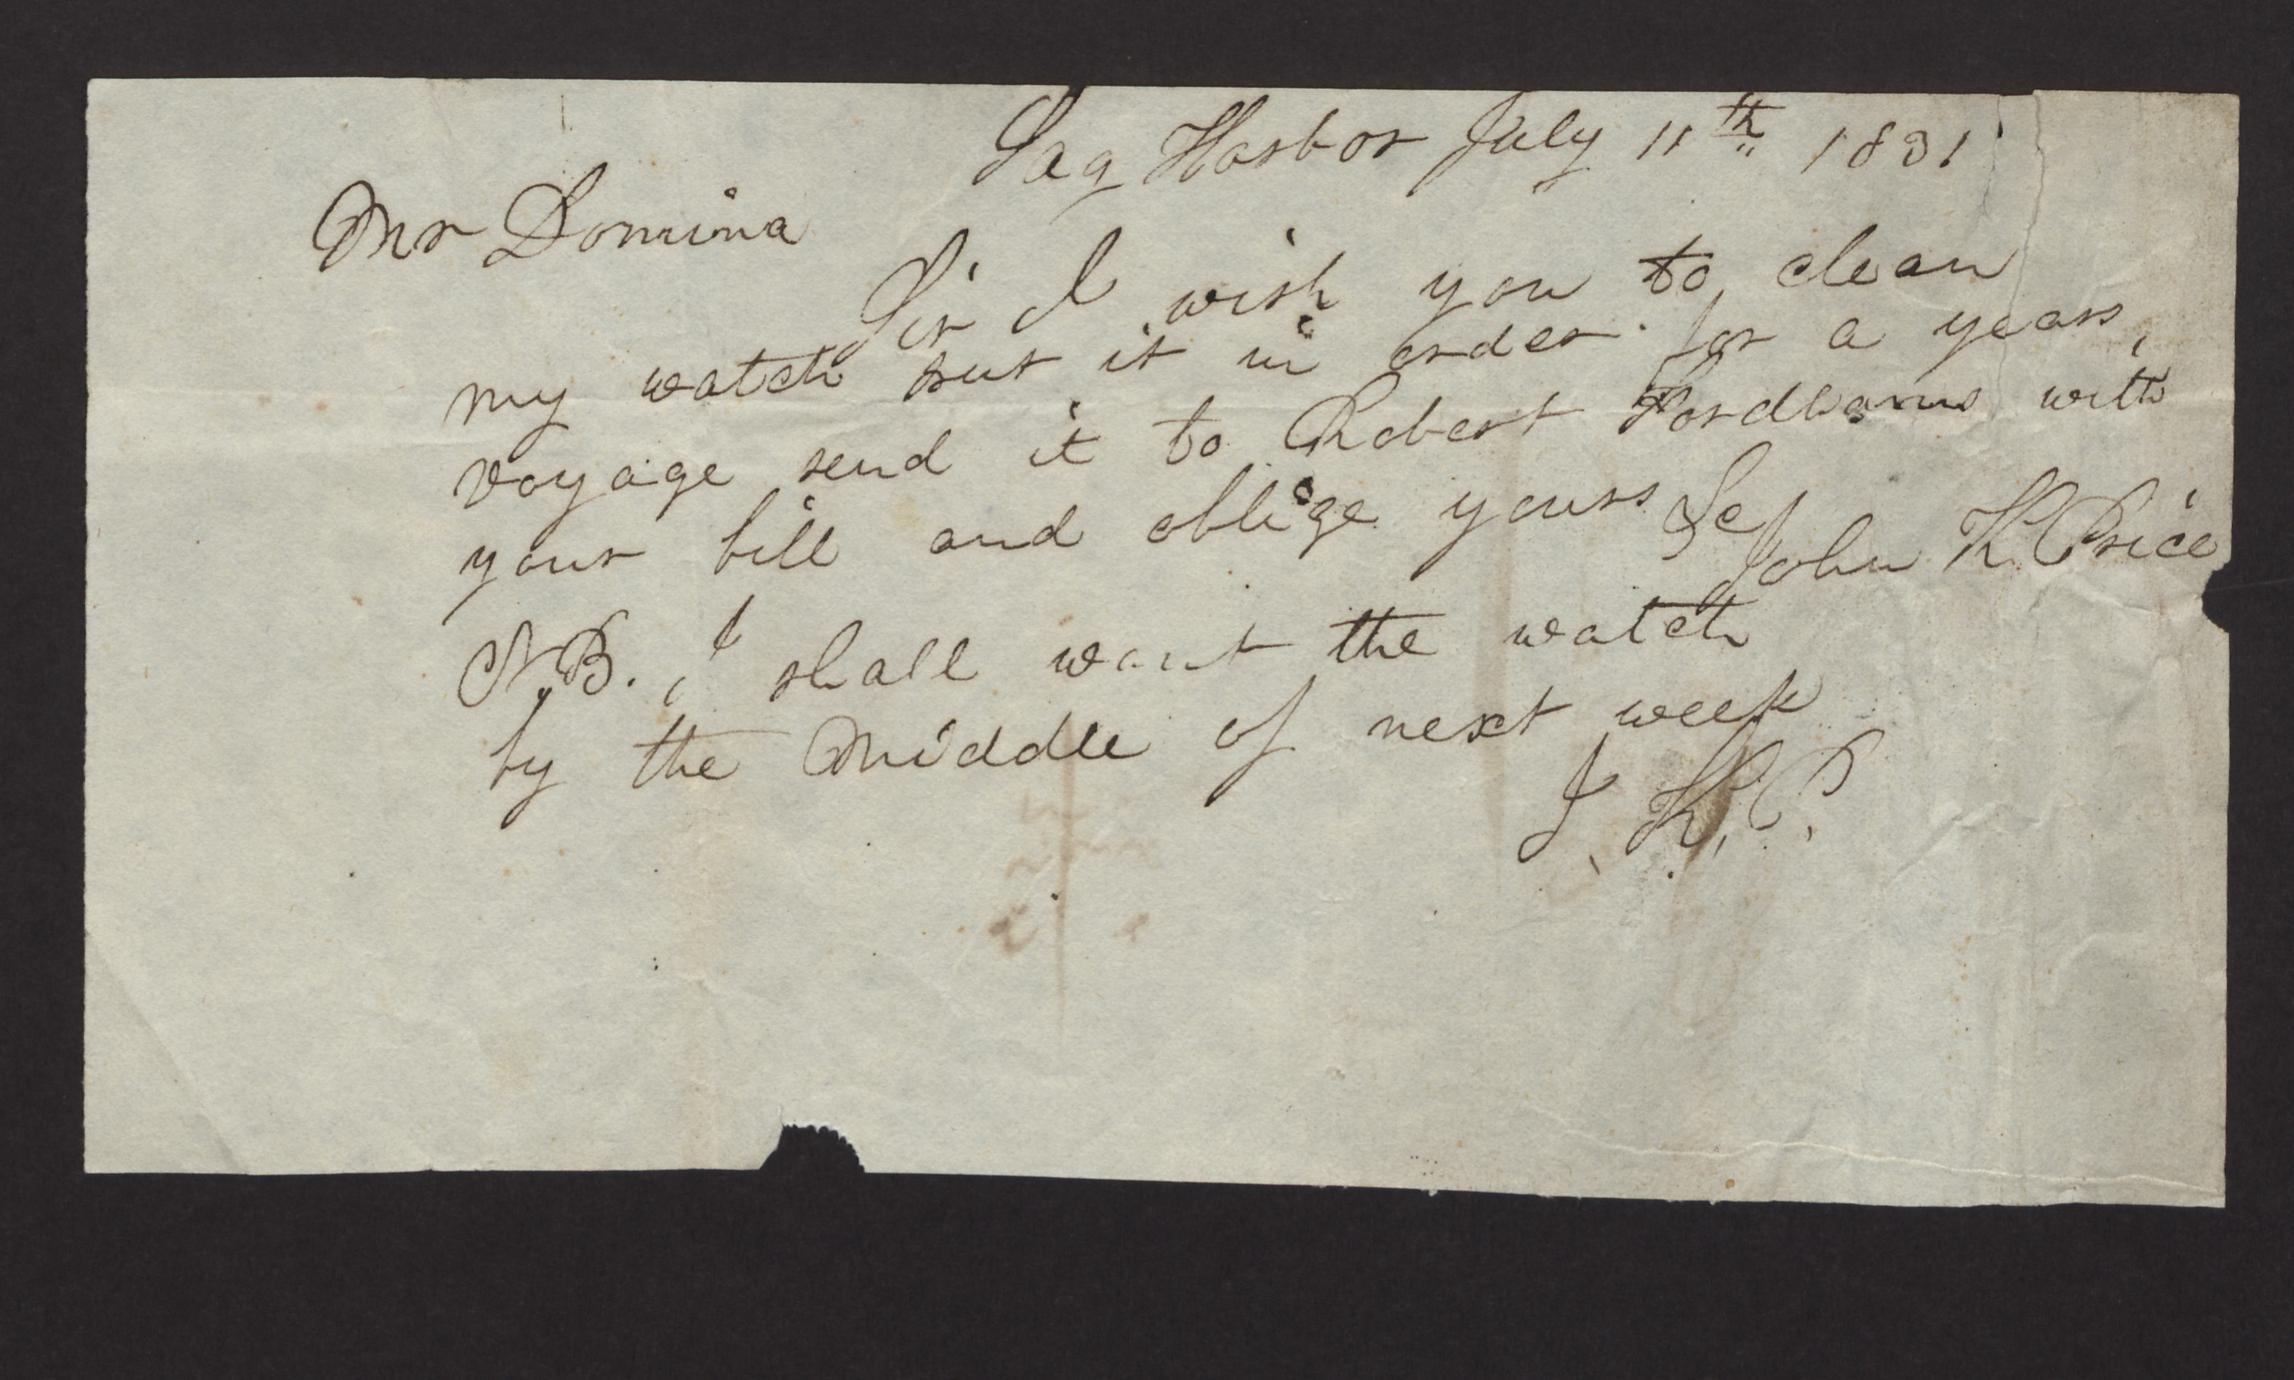 Sag Harbor July 11th 1831
Mr Domina
Sir I wish you to clean
my watch put it in order for a years
voyage send it to Robert Fordhams with
your bill and oblige yours &c
John K Price
NB. I shall want the watch
by the middle of next week
J. K. P.